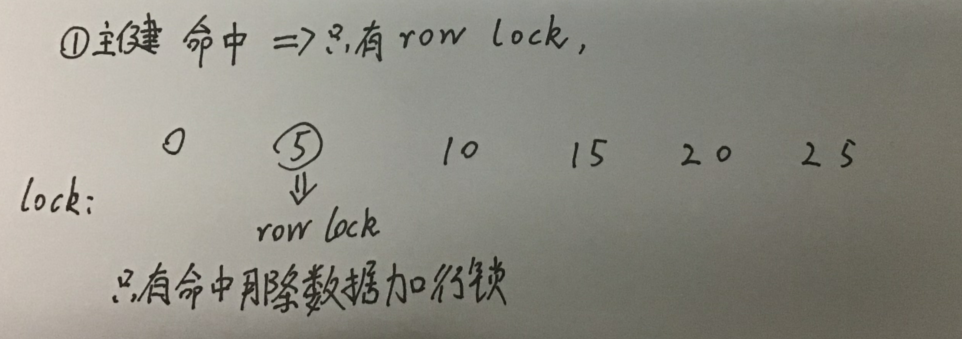 ①主键 命中 => 只有 row lock,
0 ⑤ 10 15 20 25
⇓
lock:
row lock
只有命中那条数据加行锁